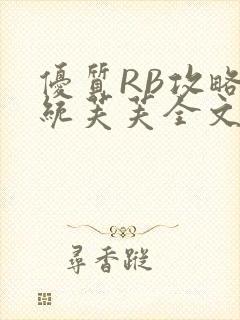 優質RB攻略
統芙芙全文
尋香蹤